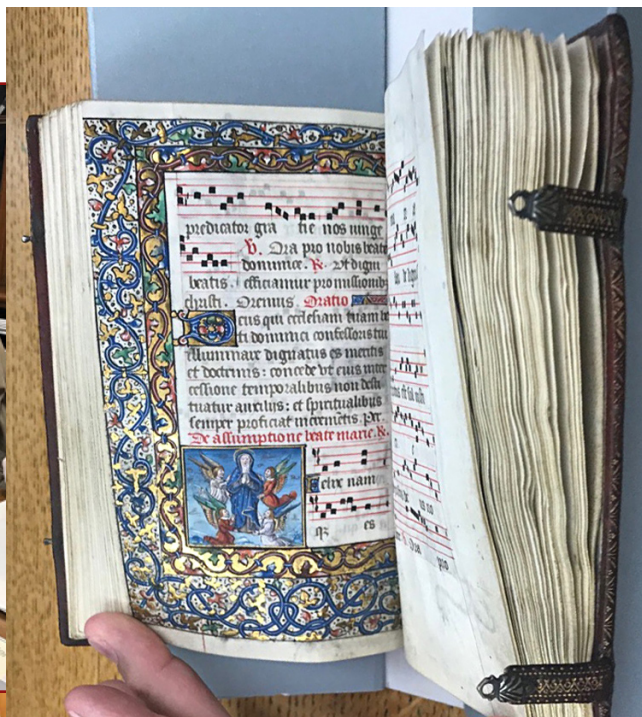 predicator gra tie nos iunge
V. Ora pro nobis beate
dominice. R. Vt digni
beatis. efficiamur promissionib
christi. Oremus. Oratio
Deus qui ecclesiam tuam be
ti dominici confessoris tui
illuminare dignatus es meritis
et doctrinis: concede vt eius inter
cessione temporalibus non desti
tuatur auxilijs: et spiritualibus
semper proficiat incremētis. Per
De assumptione beate marie. R.
Felix nam
qz es